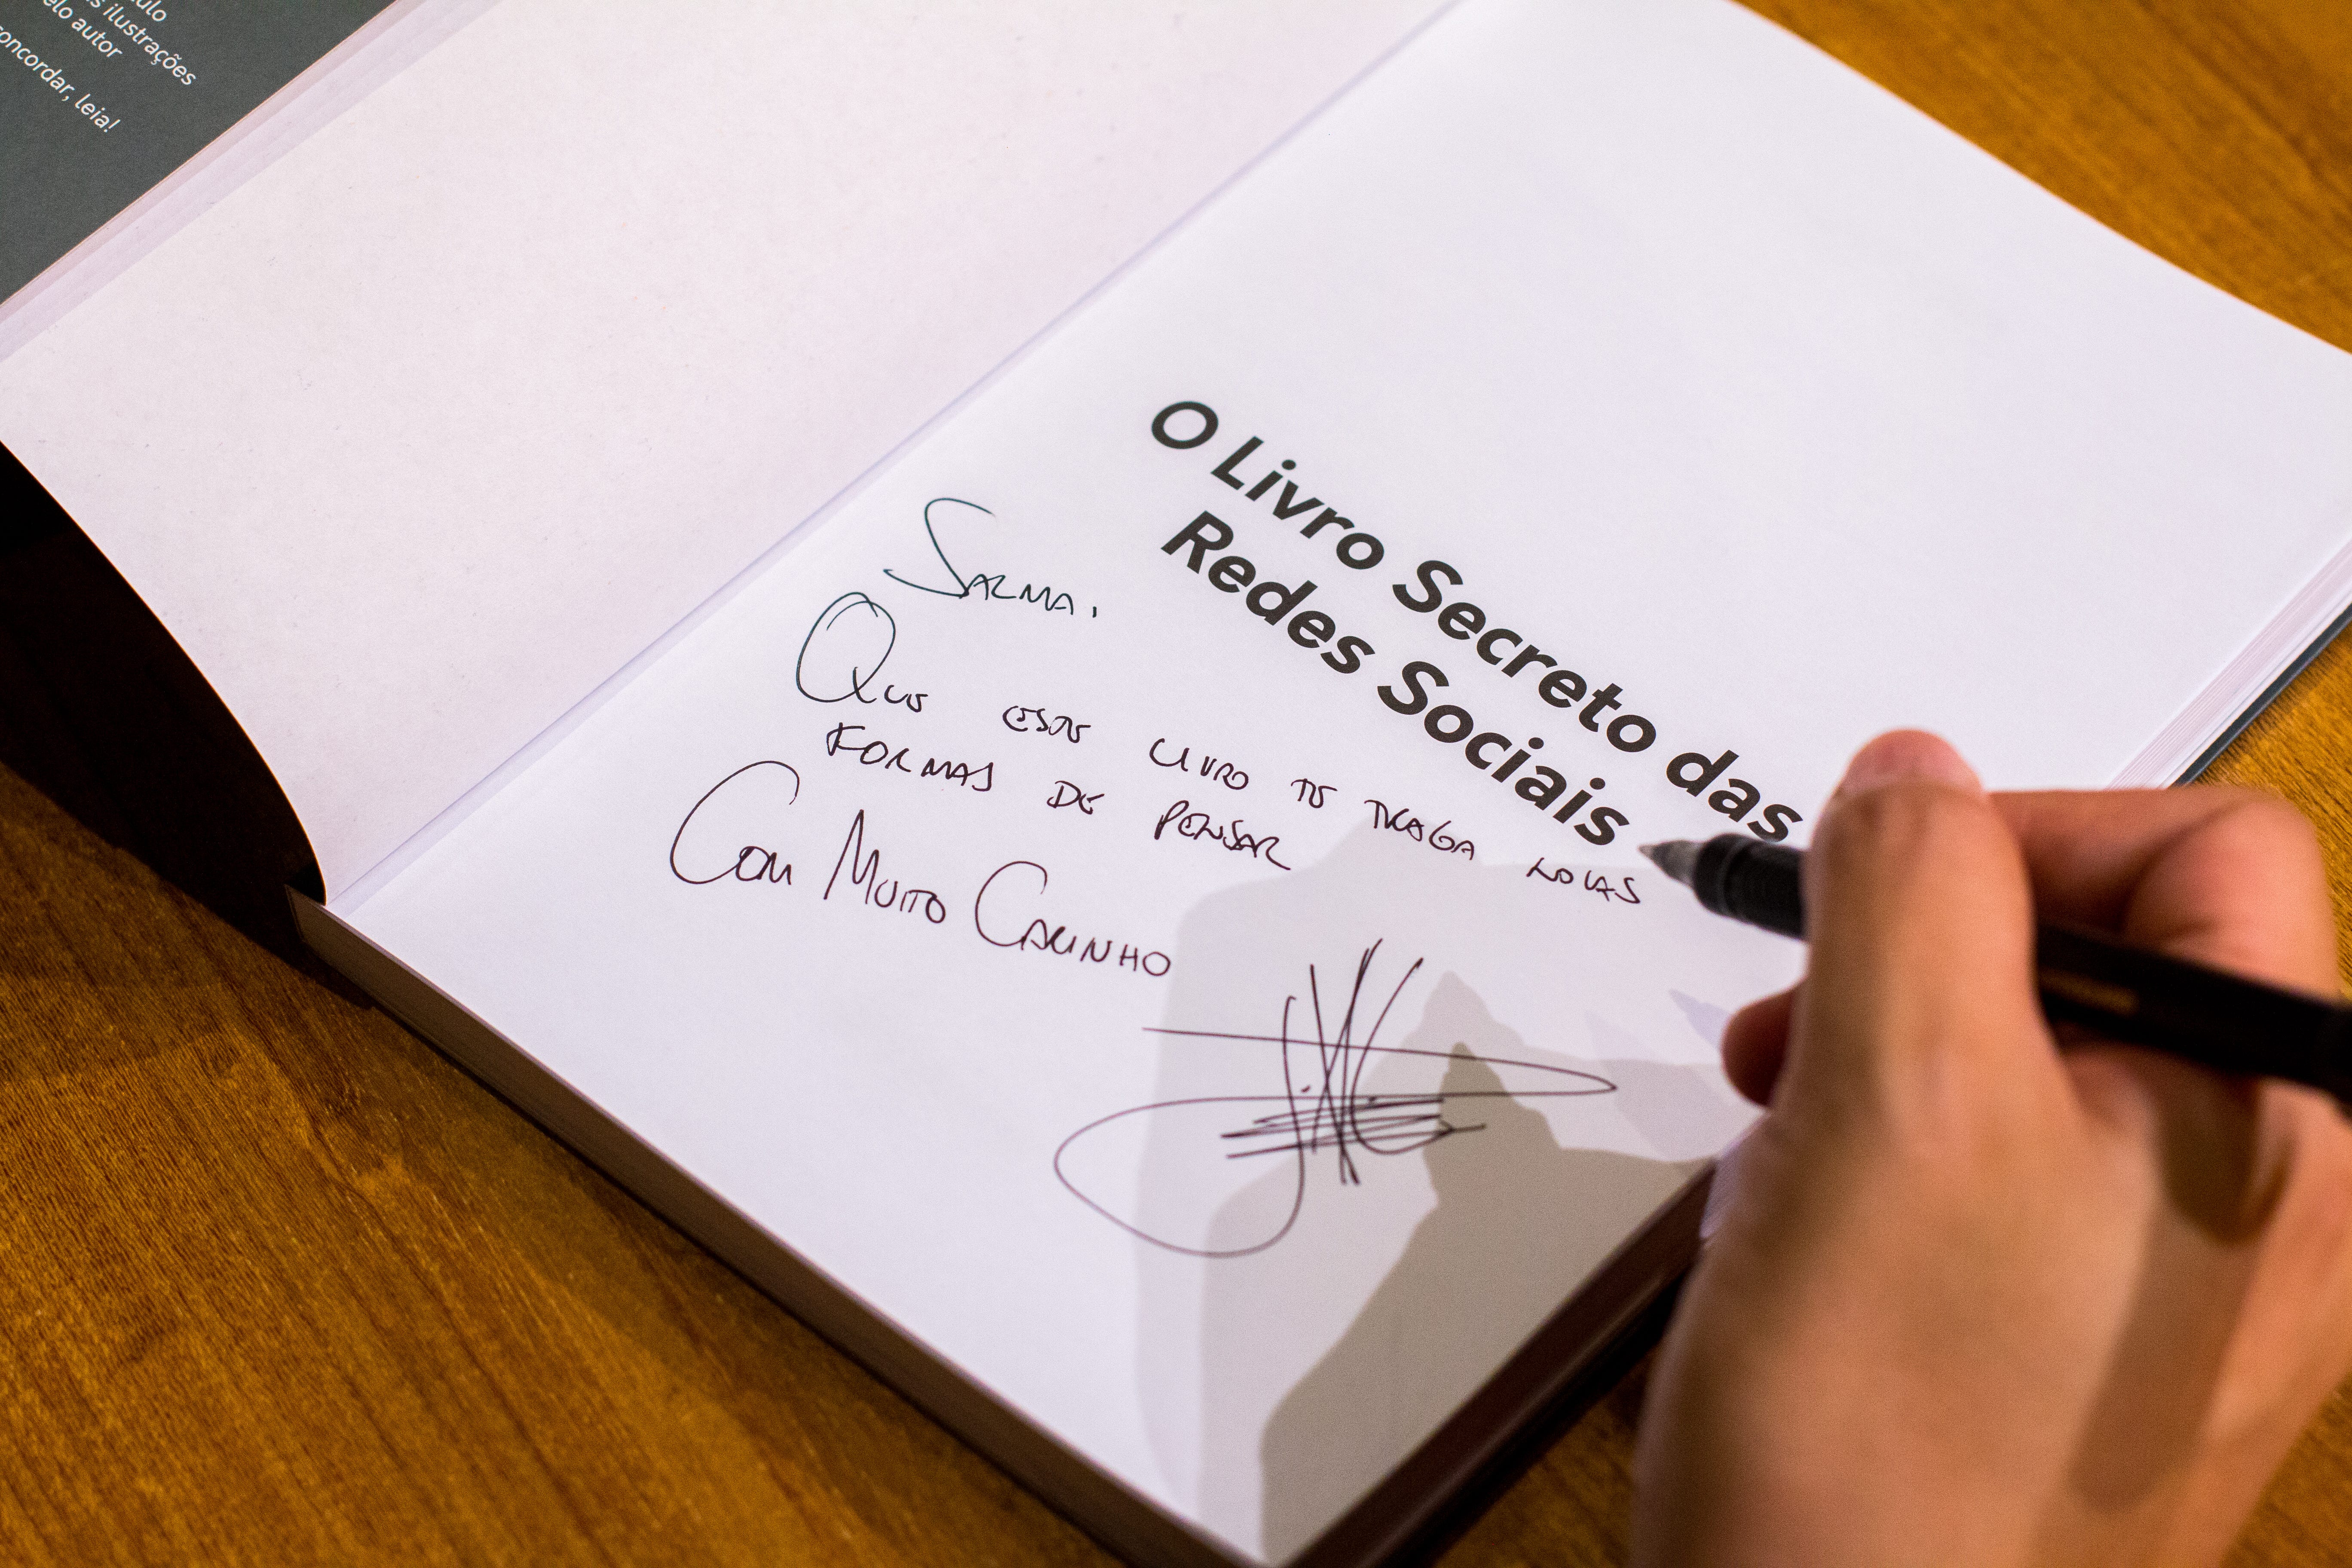 ulo
s ilustrações
elo autor
concordar, leia!
O Livro Secreto das
Redes Sociais
SALMA,
QUE ESTE LIVRO TE TRAGA NOVAS
FORMAS DE PENSAR
COM MUITO CARINHO